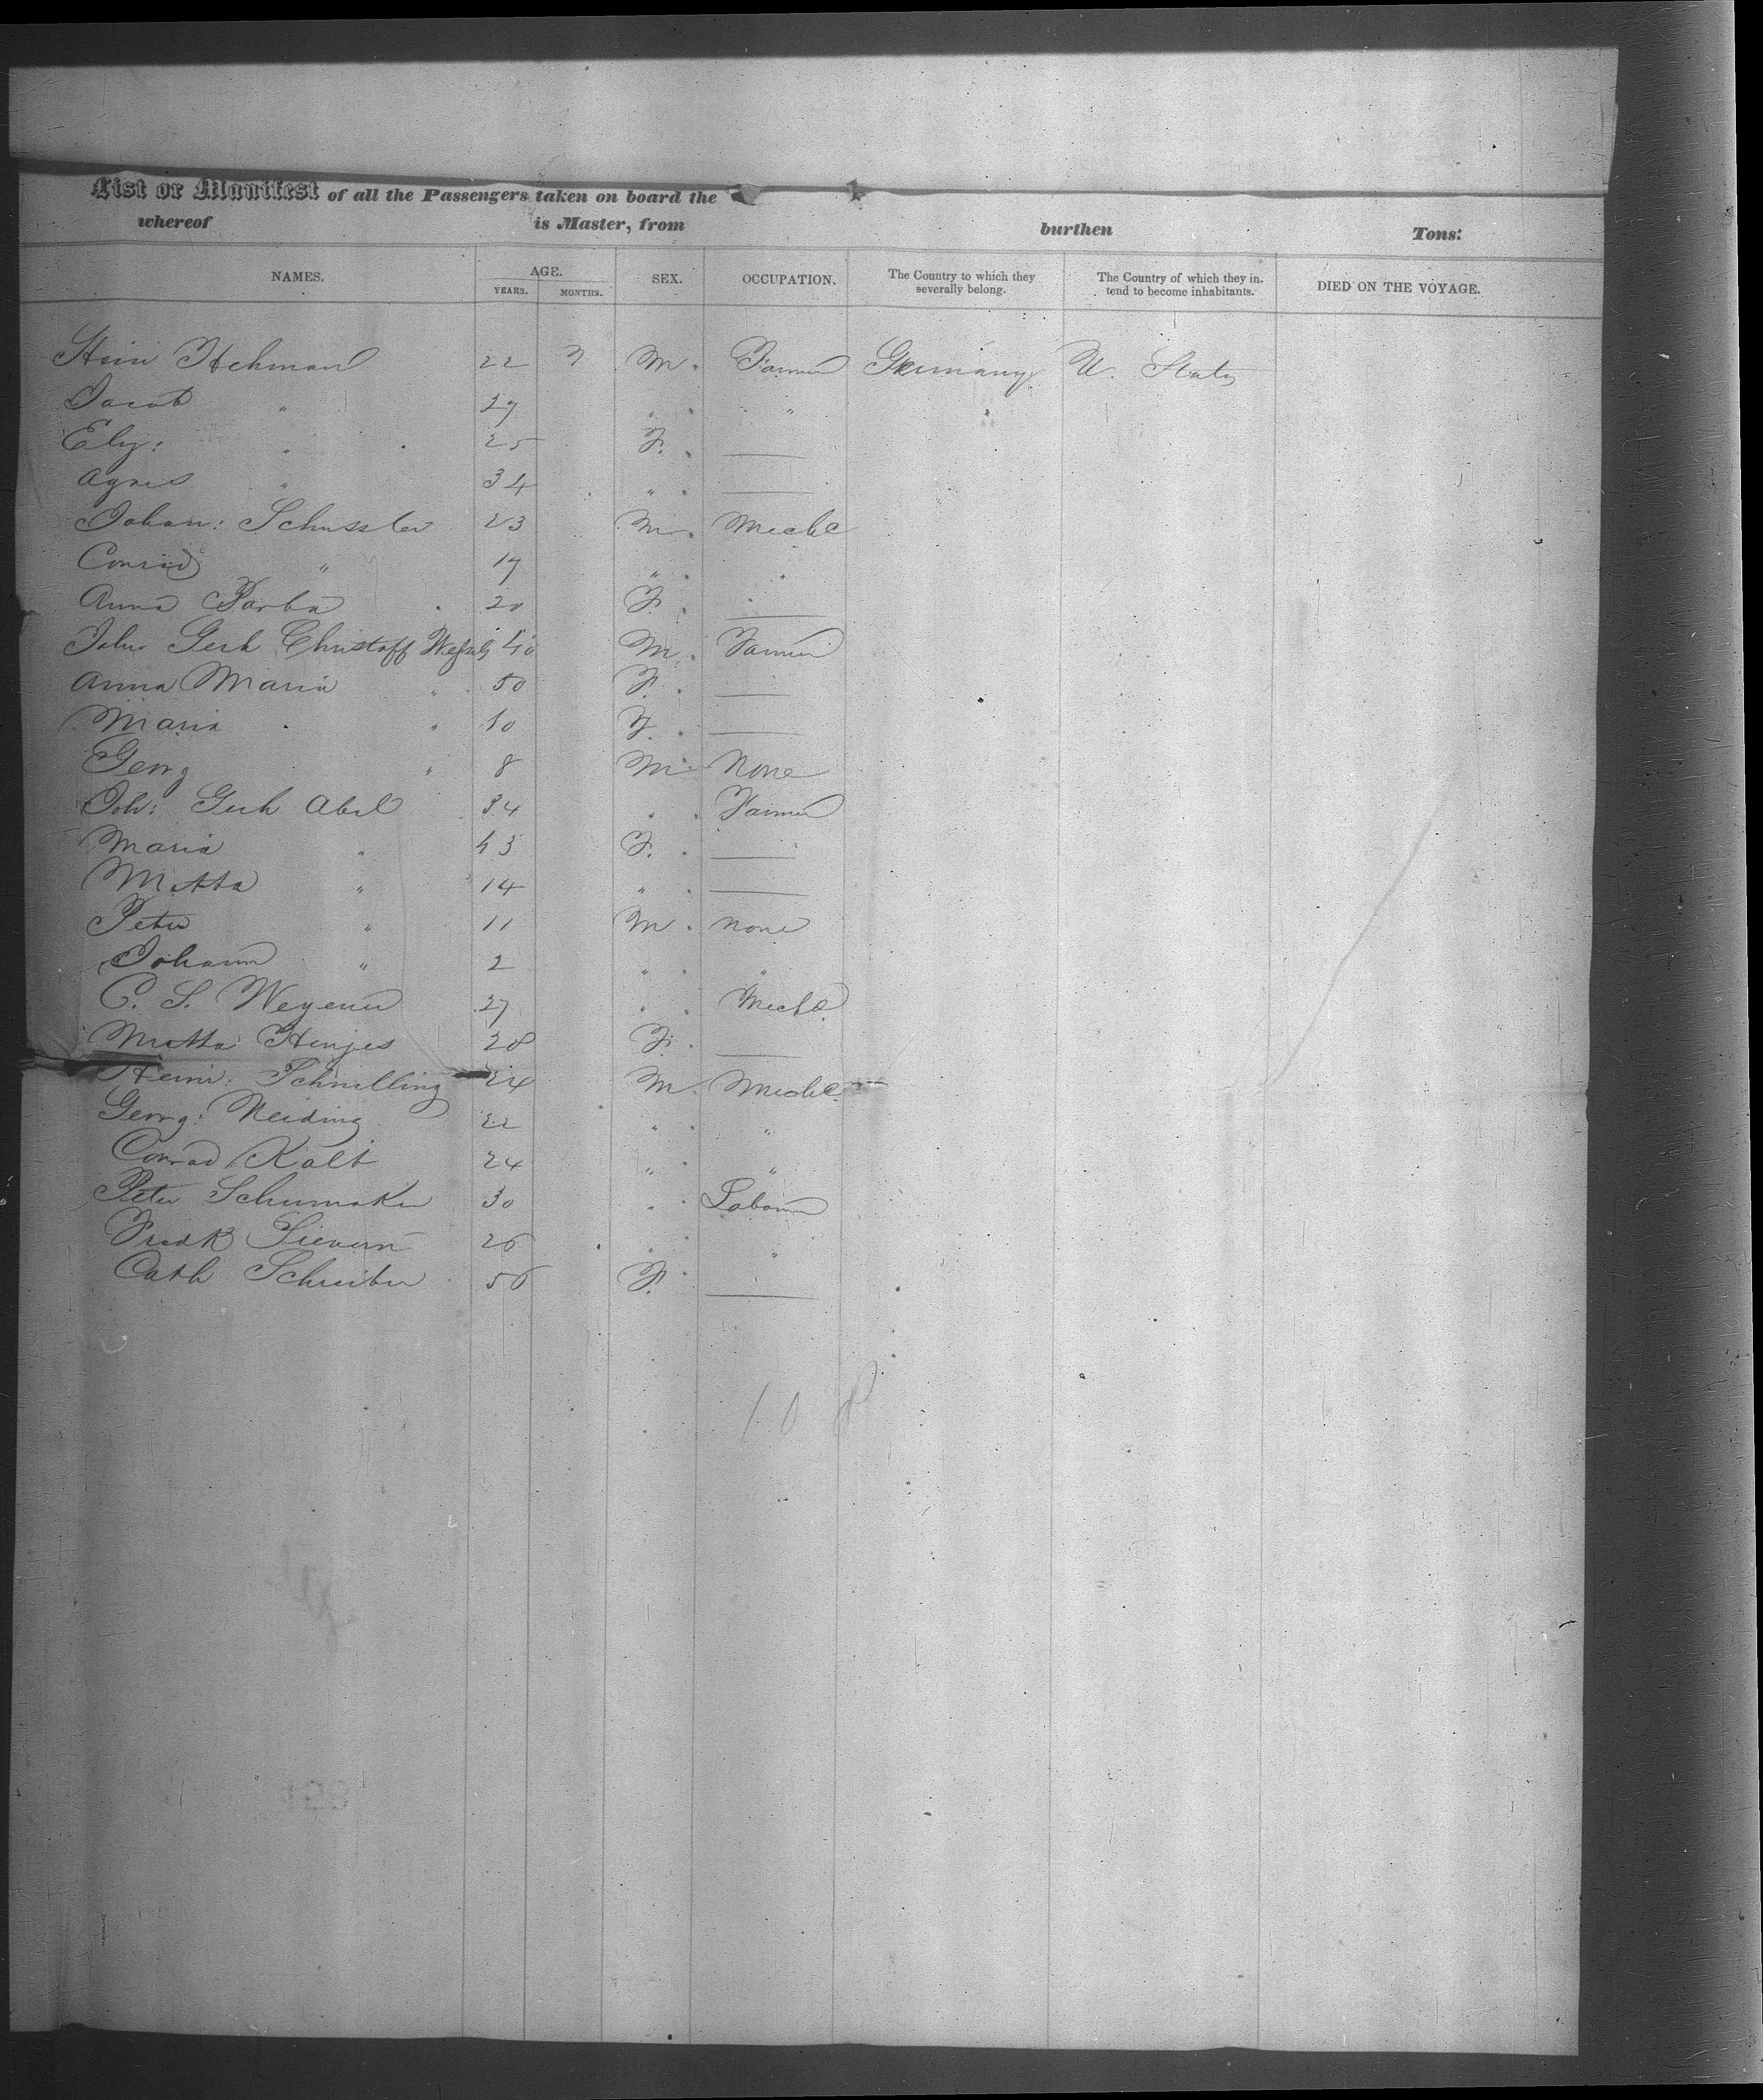 List or Manifest of all the Passengers taken on board the
whereof is Master, from burthen Tons:
NAMES. AGE. YEARS. MONTHS. SEX. OCCUPATION. The Country to which they severally belong. The Country of which they intend to become inhabitants. DIED ON THE VOYAGE.
Hein Hehman 22 M. Farmer Germany U. States
Jacob " 27 " "
Ely: " 25 F. —
Agnes " 34 " —
Johan: Schussler 23 M. Meche
Conrad " 17 " "
Anna Barba 20 F. —
John Gerh Christoff 40 M. Farmer
Anna Maria " 50 F. —
Maria " 10 F. —
Georg " 8 M None
Joh: Gerh Abel 34 " Farmer
Maria " 43 F. —
Metta " 14 " —
Peter " 11 M. none
Johann " 2 " "
C. S. Wegener 27 " Meche
Metta Hinjes 28 F. —
Heinr: Schnelling 24 M Meche
Georg: Neiding 22 " "
Conrad Kalb 24 " "
Peter Schumaker 30 " Labourer
Fredk Sievern 26 " "
Cath Schreiber 56 F. —
10